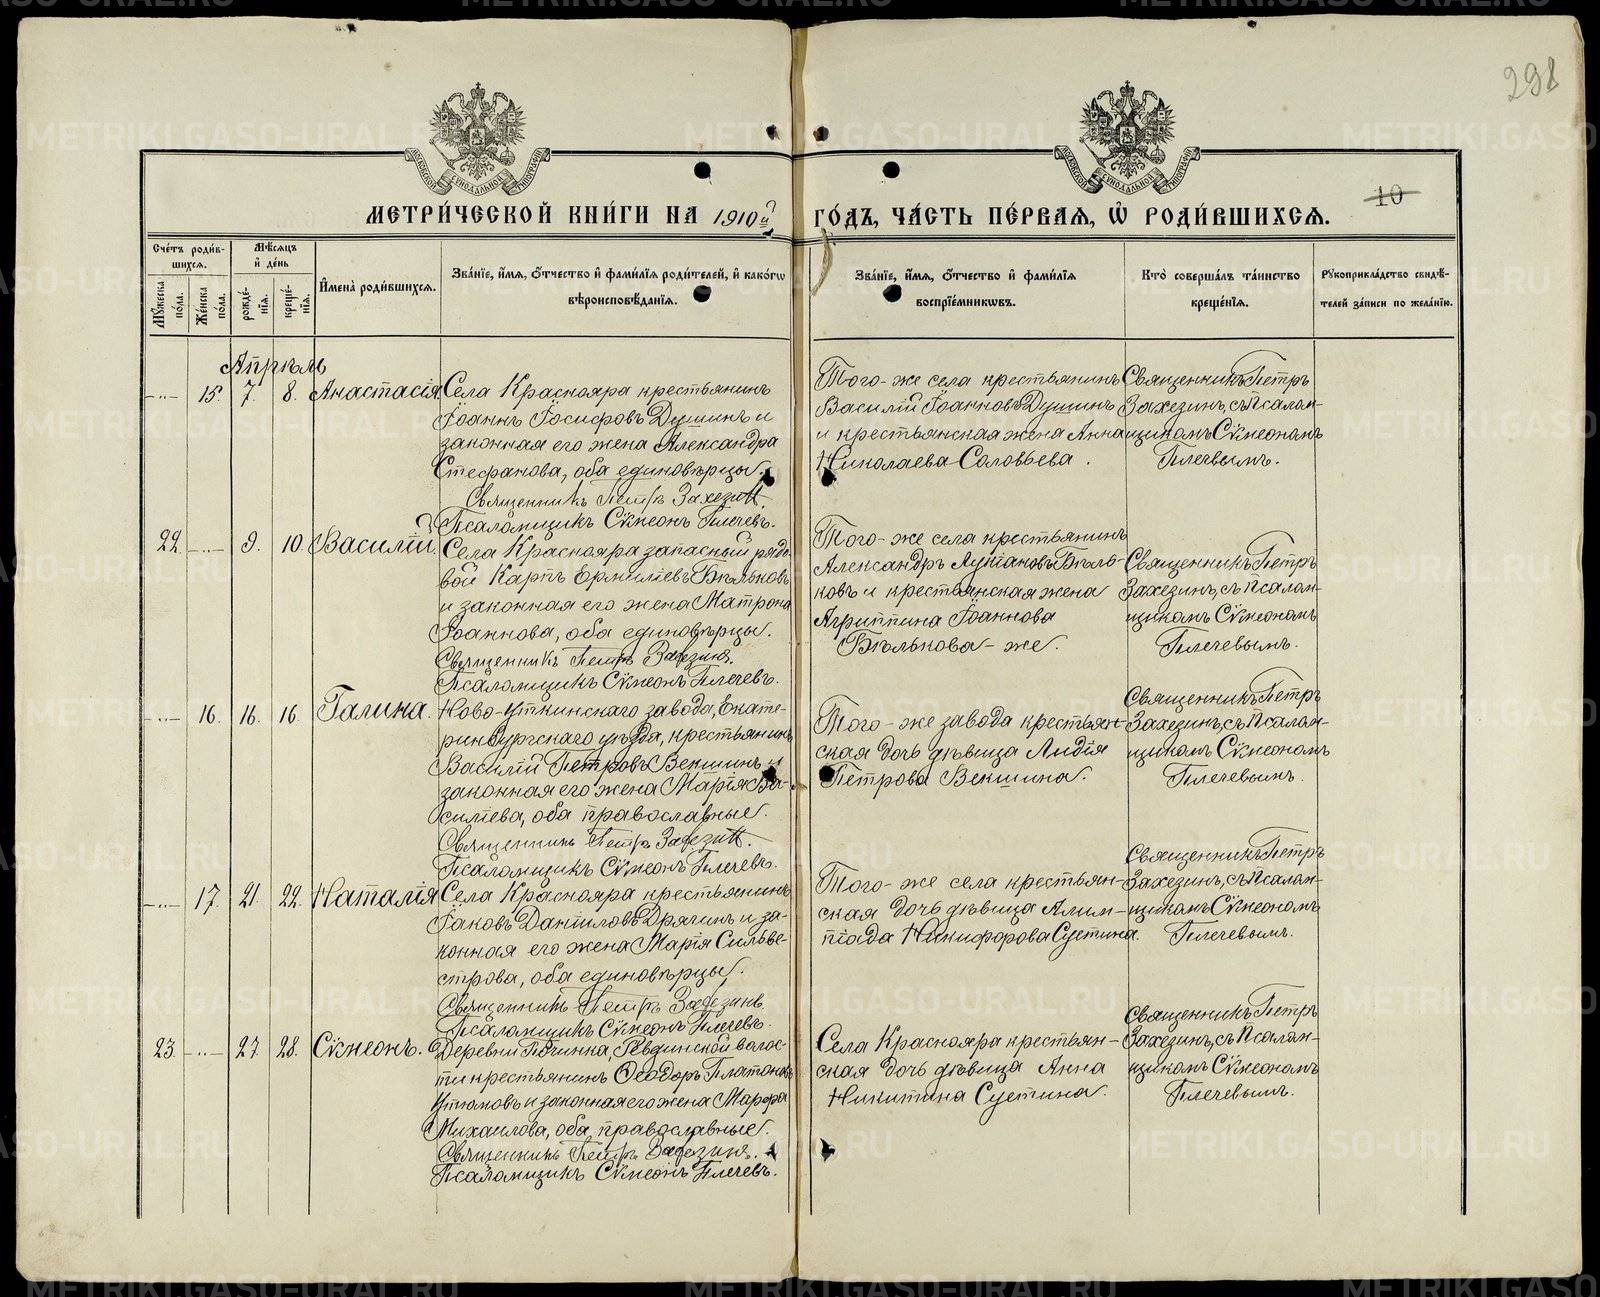 298
МОСКОВСКОЙ СѴНОДАЛЬНОЙ ТИПОГРАФІИ
МОСКОВСКОЙ СѴНОДАЛЬНОЙ ТИПОГРАФІИ
10
МЕТРИ́ЧЕСКОЙ КНИ́ГИ НА 1910й
ГО́ДЪ, ЧА́СТЬ ПЕ́РВАѦ, Ѡ҆ РОДИ́ВШИХСѦ.
Сче́тъ роди́в-
шихсѧ.
Мꙋ́жеска по́ла.
Же́нска по́ла.
Мѣ́сѧцъ и҆ де́нь
рожде́-
нїѧ.
креще́-
нїѧ.
И҆мена̀ роди́вшихсѧ.
Зва́нїе, и҆́мѧ, ѻ҆́тчество и҆ фами́лїѧ роди́телей, и҆ како́гѡ
вѣроисповѣ́данїѧ.
Зва́нїе, и҆́мѧ, ѻ҆́тчество и҆ фами́лїѧ
воспрїе́мникѡвъ.
Кто̀ соверша́лъ та́инство
креще́нїѧ.
Рꙋкоприкла́дство свидѣ́-
телей за́писи по жела́нїю.
Апрѣль
-..- 15. 7. 8. Анастасія.
Села Краснояра крестьянинъ
Іоаннъ Іосифовъ Душинъ и
законная его жена Александра
Стефанова, оба единовѣрцы.
Священникъ Петръ Захезин
Псаломщикъ Сѵмеонъ Плечевъ.
Того-же села крестьянинъ
Василій Іоанновъ Душинъ
и крестьянская жена Анна
Николаева Соловьева.
Священникъ Петръ
Захезинъ, съ Псалом-
щикомъ Сѵмеономъ
Плечевымъ.
22. -..- 9. 10. Василій.
Села Краснояра запасный рядо-
вой Карпъ Ермиліевъ Бѣльковъ
и законная его жена Матрона
Іоаннова, оба единовѣрцы.
Священникъ Петръ Захезинъ.
Псаломщикъ Сѵмеонъ Плечевъ.
Того-же села крестьянинъ
Александръ Лукіановъ Бѣль-
ковъ и крестьянская жена
Агриппина Іоаннова
Бѣлькова-же.
Священникъ Петръ
Захезинъ, съ Псалом-
щикомъ Сѵмеономъ
Плечевымъ.
-..- 16. 16. 16. Галина.
Ново-Уткинскаго завода, Екате-
ринбургскаго уѣзда, крестьянинъ
Василій Петровъ Векшинъ и
законная его жена Марія Ва-
силіева, оба православные.
Священникъ Петръ Захезин.
Псаломщикъ Сѵмеонъ Плечевъ.
Того-же завода крестьян-
ская дочь дѣвица Лидія
Петрова Векшина.
Священникъ Петръ
Захезинъ, съ Псалом-
щикомъ Сѵмеономъ
Плечевымъ.
-..- 17. 21. 22. Наталія
Села Краснояра крестьянинъ
Іаковъ Даніиловъ Дрягинъ и за-
конная его жена Марія Сильве-
строва, оба единовѣрцы.
Священникъ Петръ Захезинъ.
Псаломщикъ Сѵмеонъ Плечевъ.
Того-же села крестьян-
ская дочь дѣвица Алим-
піада Никифорова Суетина.
Священникъ Петръ
Захезинъ, съ Псалом-
щикомъ Сѵмеономъ
Плечевымъ.
23. -..- 27. 28. Сѵмеонъ.
Деревни Починка, Ревдинской волос-
ти крестьянинъ Ѳеодоръ Платоновъ
Утюмовъ и законная его жена Марфа
Михаилова, оба православные.
Священникъ Петръ Захезинъ.
Псаломщикъ Сѵмеонъ Плечевъ.
Села Краснояра крестьян-
ская дочь дѣвица Анна
Никитина Суетина.
Священникъ Петръ
Захезинъ, съ Псалом-
щикомъ Сѵмеономъ
Плечевымъ.
METRIKI.GASO-URAL.RU